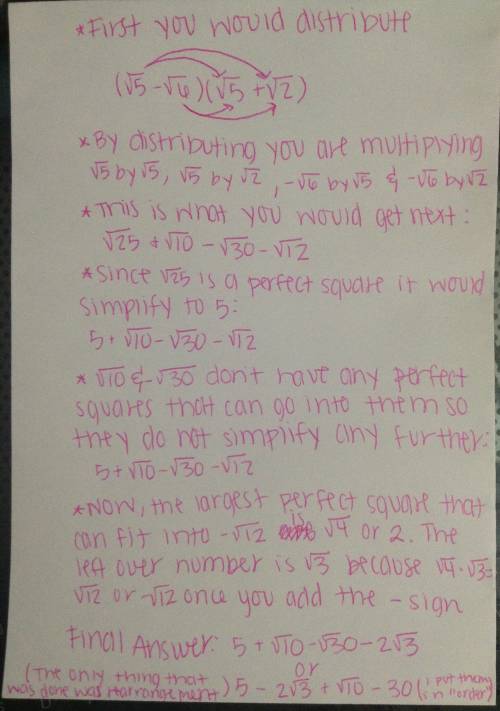 *First you would distribute
(√5 - √6)(√5 + √2)
*By distributing you are multiplying
√5 by √5, √5 by √2, -√6 by √5 & -√6 by √2
*This is what you would get next:
√25 + √10 - √30 - √12
*Since √25 is a perfect square it would
simplify to 5:
5 + √10 - √30 - √12
* √10 & -√30 don't have any perfect
squares that can go into them so
they do not simplify any further:
5 + √10 - √30 - √12
*Now, the largest perfect square that
can fit into -√12 is √4 or 2. The
left over number is √3 because √4 · √3 =
√12 or -√12 once you add the - sign
Final Answer: 5 + √10 - √30 - 2√3
or
(The only thing that
was done was rearrangement) 5 - 2√3 + √10 - 30 (i put them
in "order")